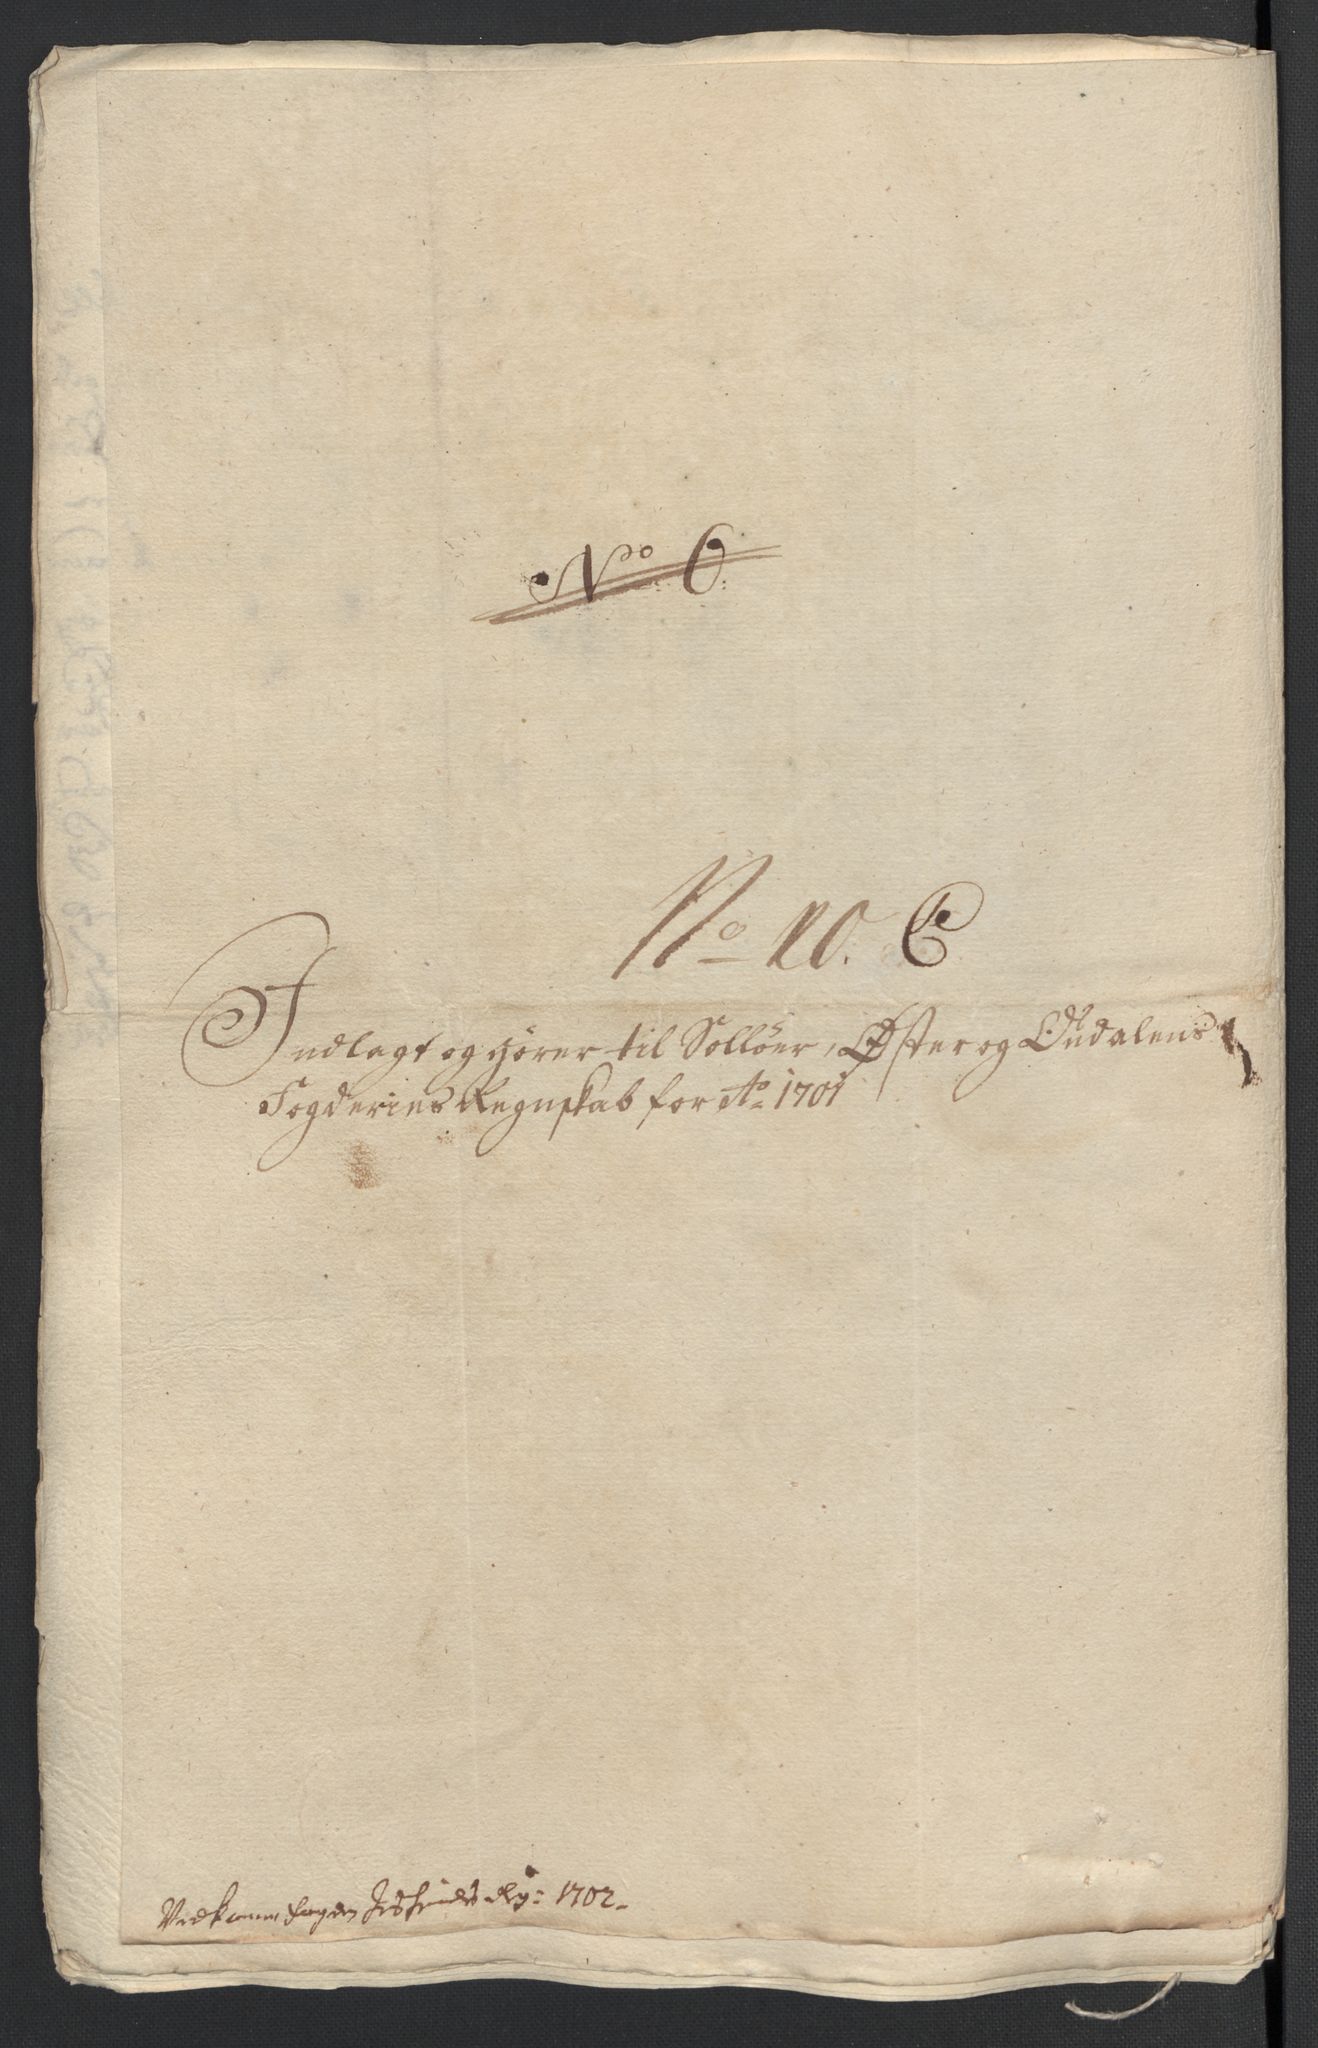 No 6.
No 10. C
Indlagt og hörer til Sollöer, Østter og Oudalens
Fogderies Regnskab for Ao 1701
Vedkomm fogden 1702.